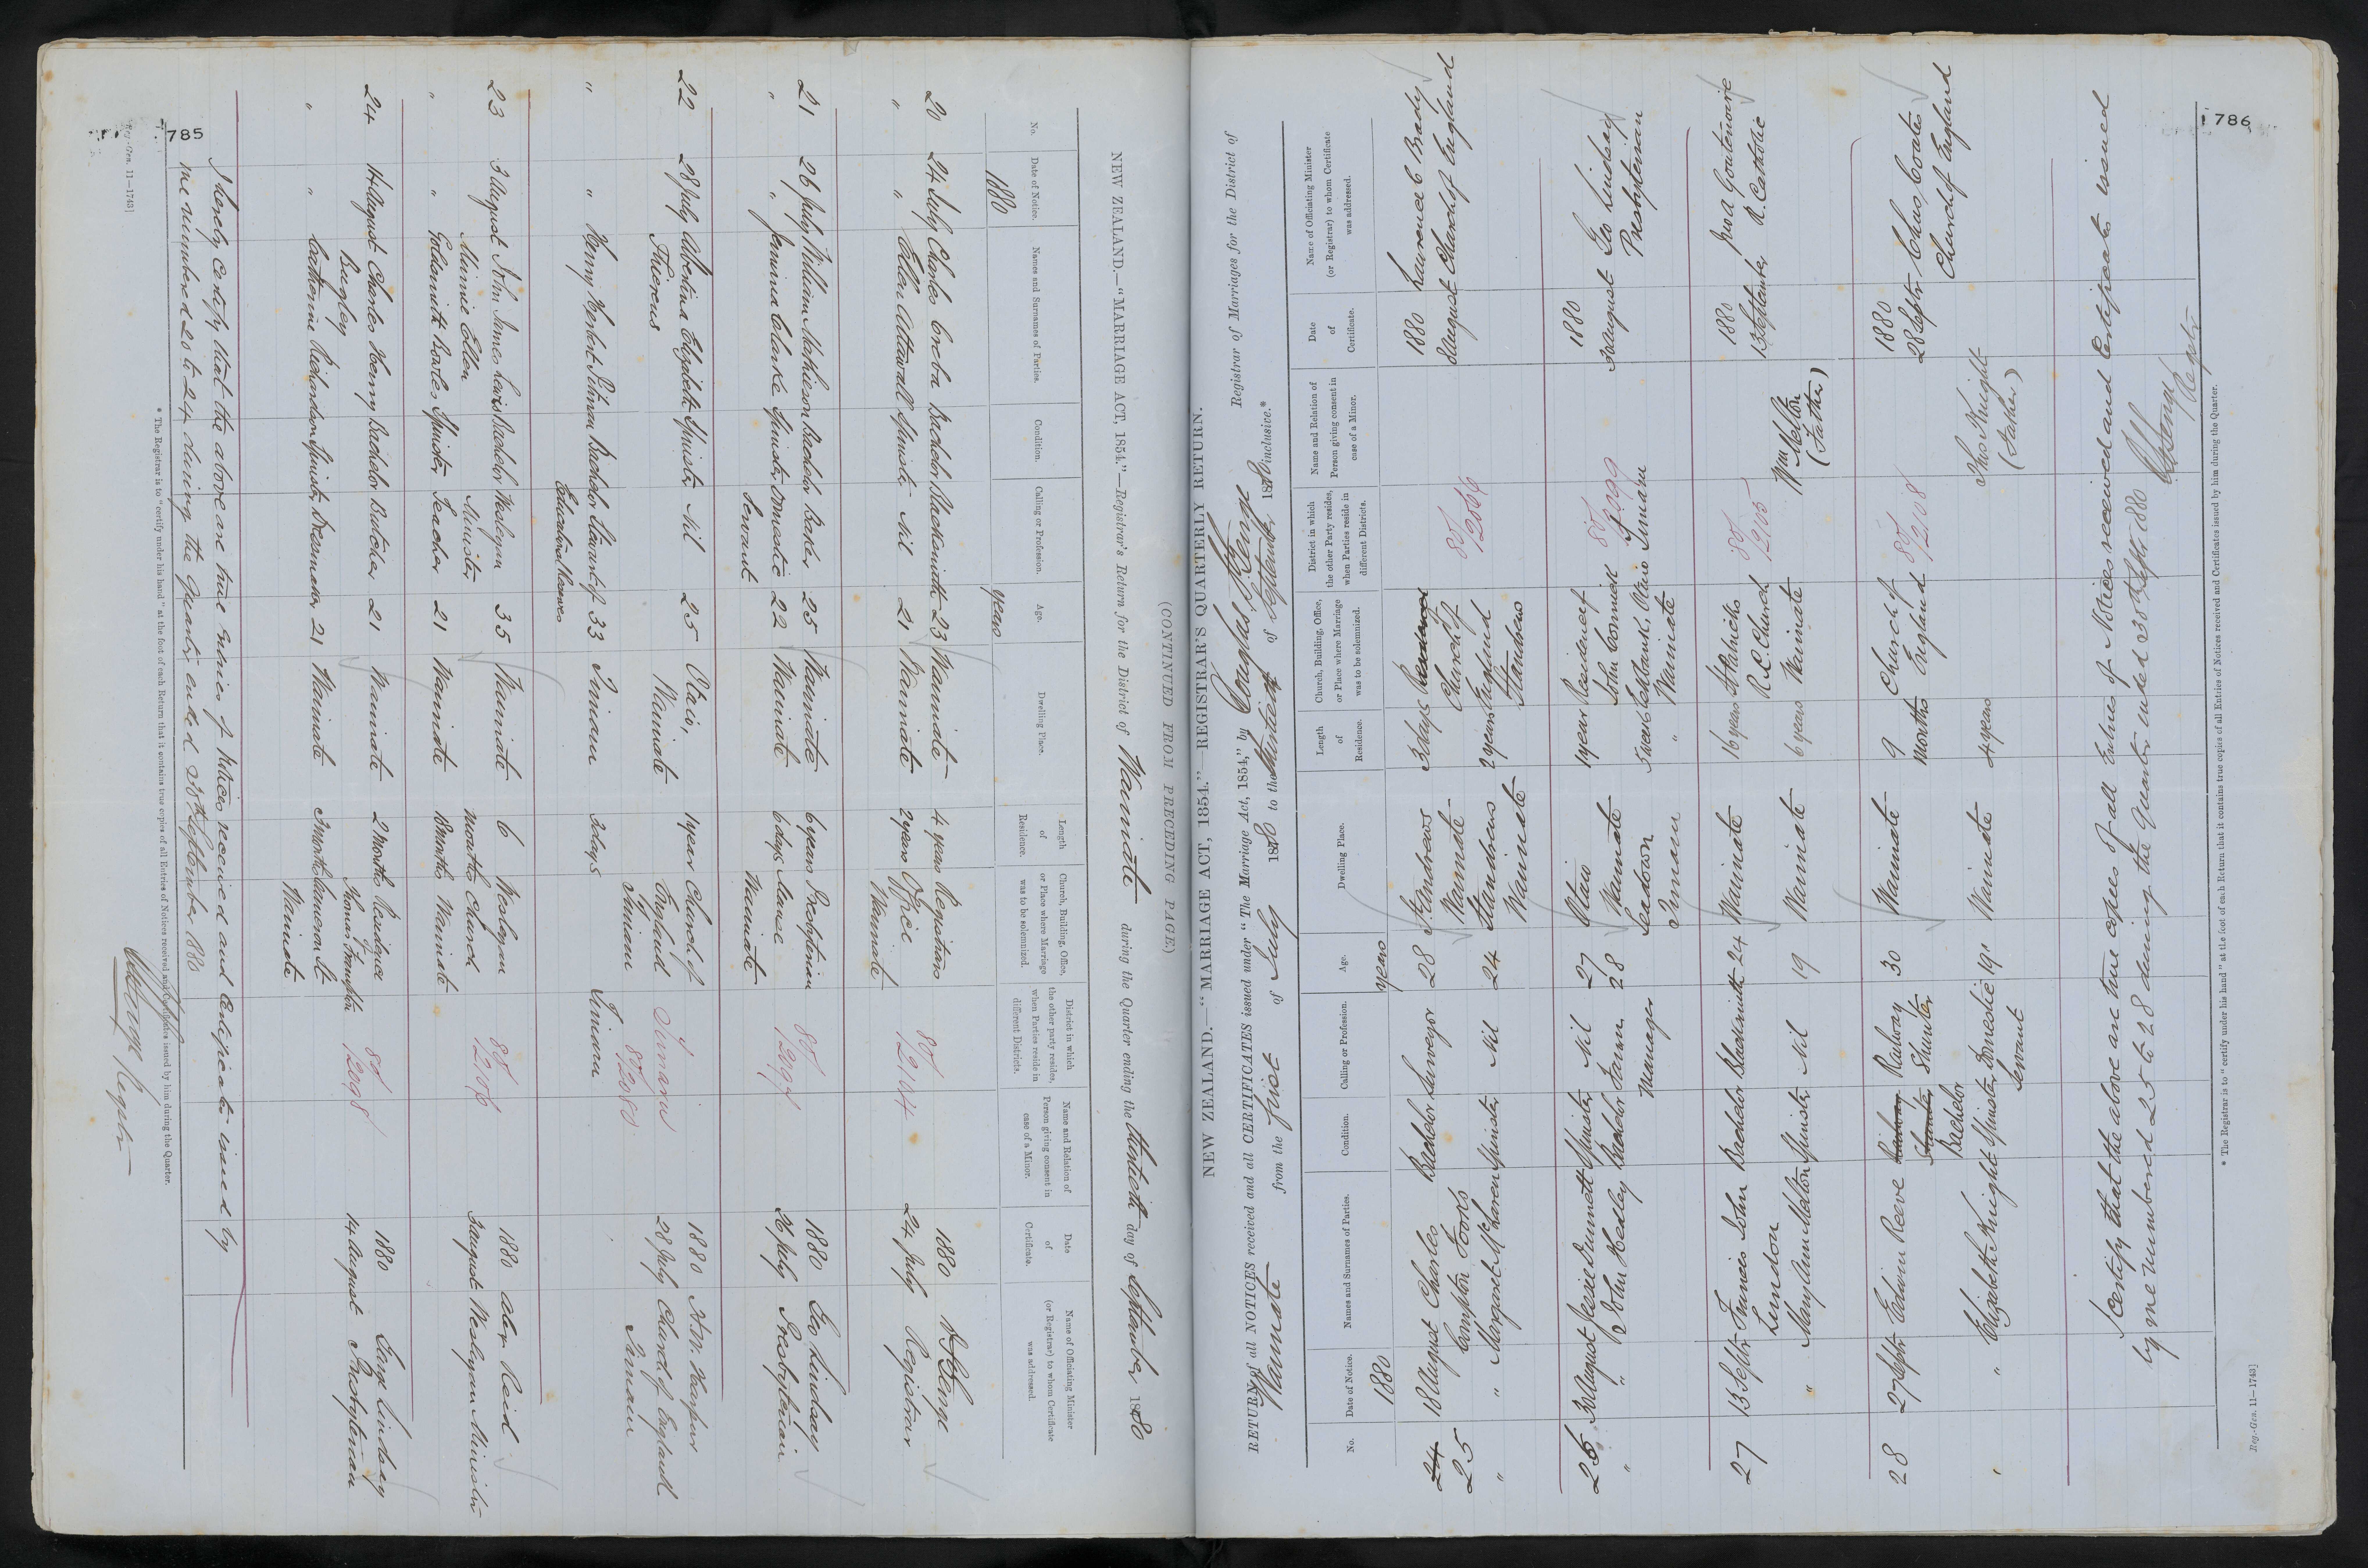 785
NEW ZEALAND.—"MARRIAGE ACT, 1854."—Registrar's Return for the District of Waimate during the Quarter ending the thirtieth day of September 1880
(CONTINUED FROM PRECEDING PAGE.)
No. Date of Notice. Names and Surnames of Parties. Condition. Calling or Profession. Age. Dwelling Place. Length of Residence. Church, Building, Office, or Place where Marriage was to be solemnized. District in which the other party resides, when Parties reside in different Districts. Name and Relation of Person giving consent in case of a Minor. Date of Certificate. Name of Officiating Minister (or Registrar) to whom Certificate was addressed.
1880 years
20 24 July Charles Bachelor Blacksmith 23 Waimate 4 years Registrars 80/2144 1880 24 July Registrar
" " Ellen Attwall Spinster Nil 21 Waimate 2 years Office Waimate
21 26 July William Mathieson Bachelor Baker 25 Waimate 6 years Presbyterian 80/2097 1880 26 July Geo Lindsay Presbyterian
" " Jemima Clarke Spinster Domestic Servant 22 Waimate 6 days Manse Waimate
22 28 July Albertina Elizabeth Spinster Nil 25 Otaio, Waimate 1 year Church of England Timaru Timaru 80/2080 1880 28 July Church of England Timaru
" " Henry Herbert Pitman Bachelor Steward of Educational Reserves 33 Timaru 3 days Timaru
23 3 August John James Lewis Bachelor Wesleyan Minister 35 Waimate 6 months Wesleyan Church Waimate 80/2086 1880 3 August Alex Reid Wesleyan Minister
" " Minnie Ellen Goldsmith Bowles Spinster Teacher 21 Waimate 18 months
24 14 August Charles Henry Begley Bachelor Butcher 21 Waimate 2 months Residence Thomas Frampton Cameron St Waimate 80/2098 1880 14 August George Lindsay Presbyterian
" " Catherine Richardson Spinster Dressmaker 21 Waimate 3 months
I hereby Certify that the above are true Entries of Notices received and Certificates issued by
me numbered 20 to 24 during the Quarter ended 30th September 1880
Registr
* The Registrar is to "certify under his hand" at the foot of each Return that it contains true copies of all Entries of Notices received and Certificates issued by him during the Quarter.
Reg.-Gen. 11—1743]
786
NEW ZEALAND.—"MARRIAGE ACT, 1854."—REGISTRAR'S QUARTERLY RETURN.
RETURN of all NOTICES received and all CERTIFICATES issued under "The Marriage Act, 1854," by Douglas Registrar of Marriages for the District of
Waimate from the first of July 1880 to the thirtieth of September 1880 inclusive.*
No. Date of Notice. Names and Surnames of Parties. Condition. Calling or Profession. Age. Dwelling Place. Length of Residence. Church, Building, Office, or Place where Marriage was to be solemnized. District in which the other Party resides, when Parties reside in different Districts. Name and Relation of Person giving consent in case of a Minor. Date of Certificate. Name of Officiating Minister (or Registrar) to whom Certificate was addressed.
1880 years
24 25 18 August Charles Compton Foots Bachelor Surveyor 28 St Andrews Waimate 3 days Church of England St Andrews 80/2066 1880 August Laurence C Brady Church of England
" " Margaret McLaren Spinster Nil 24 St Andrews Waimate 2 years
26 30 August Jessie Dunnett Spinster Nil 27 Otaio Waimate 1 year Residence of John Cormick Otaio Waimate 80/2099 Timaru 1880 30 August Geo Lindsay Presbyterian
" " John Healey Bachelor Farm Manager 28 Seadown Timaru 5 years
27 13 Septr Francis John London Bachelor Blacksmith 24 Waimate 16 years St Patricks R.C. Church Waimate 80/2105 1880 13 September R. Catholic
" Mary Ann Melton Spinster Nil 19 Waimate 6 years Wm Melton (Father)
28 27 Septr Edwin Reeve Bachelor Railway Shunter 30 Waimate 9 months Church of England 80/2108 1880 28 Septr Chas Coates Church of England
" " Elizabeth Knight Spinster Domestic Servant 19 Waimate 4 years Thos Knight (Father)
I certify that the above are true copies of all Entries of Notices received and Certificates issued
by me numbered 25 to 28 during the Quarter ended 30th Septr 1880
Registr
* The Registrar is to "certify under his hand" at the foot of each Return that it contains true copies of all Entries of Notices received and Certificates issued by him during the Quarter.
Reg.-Gen. 11—1743]